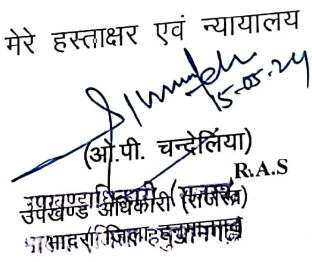 मेरे हस्ताक्षर एवं न्यायालय
15-05-24
(ओ.पी. चन्देलिया)
R.A.S
उपखण्ड अधिकारी (राजस्व)
भादरा जिला हनुमानगढ़